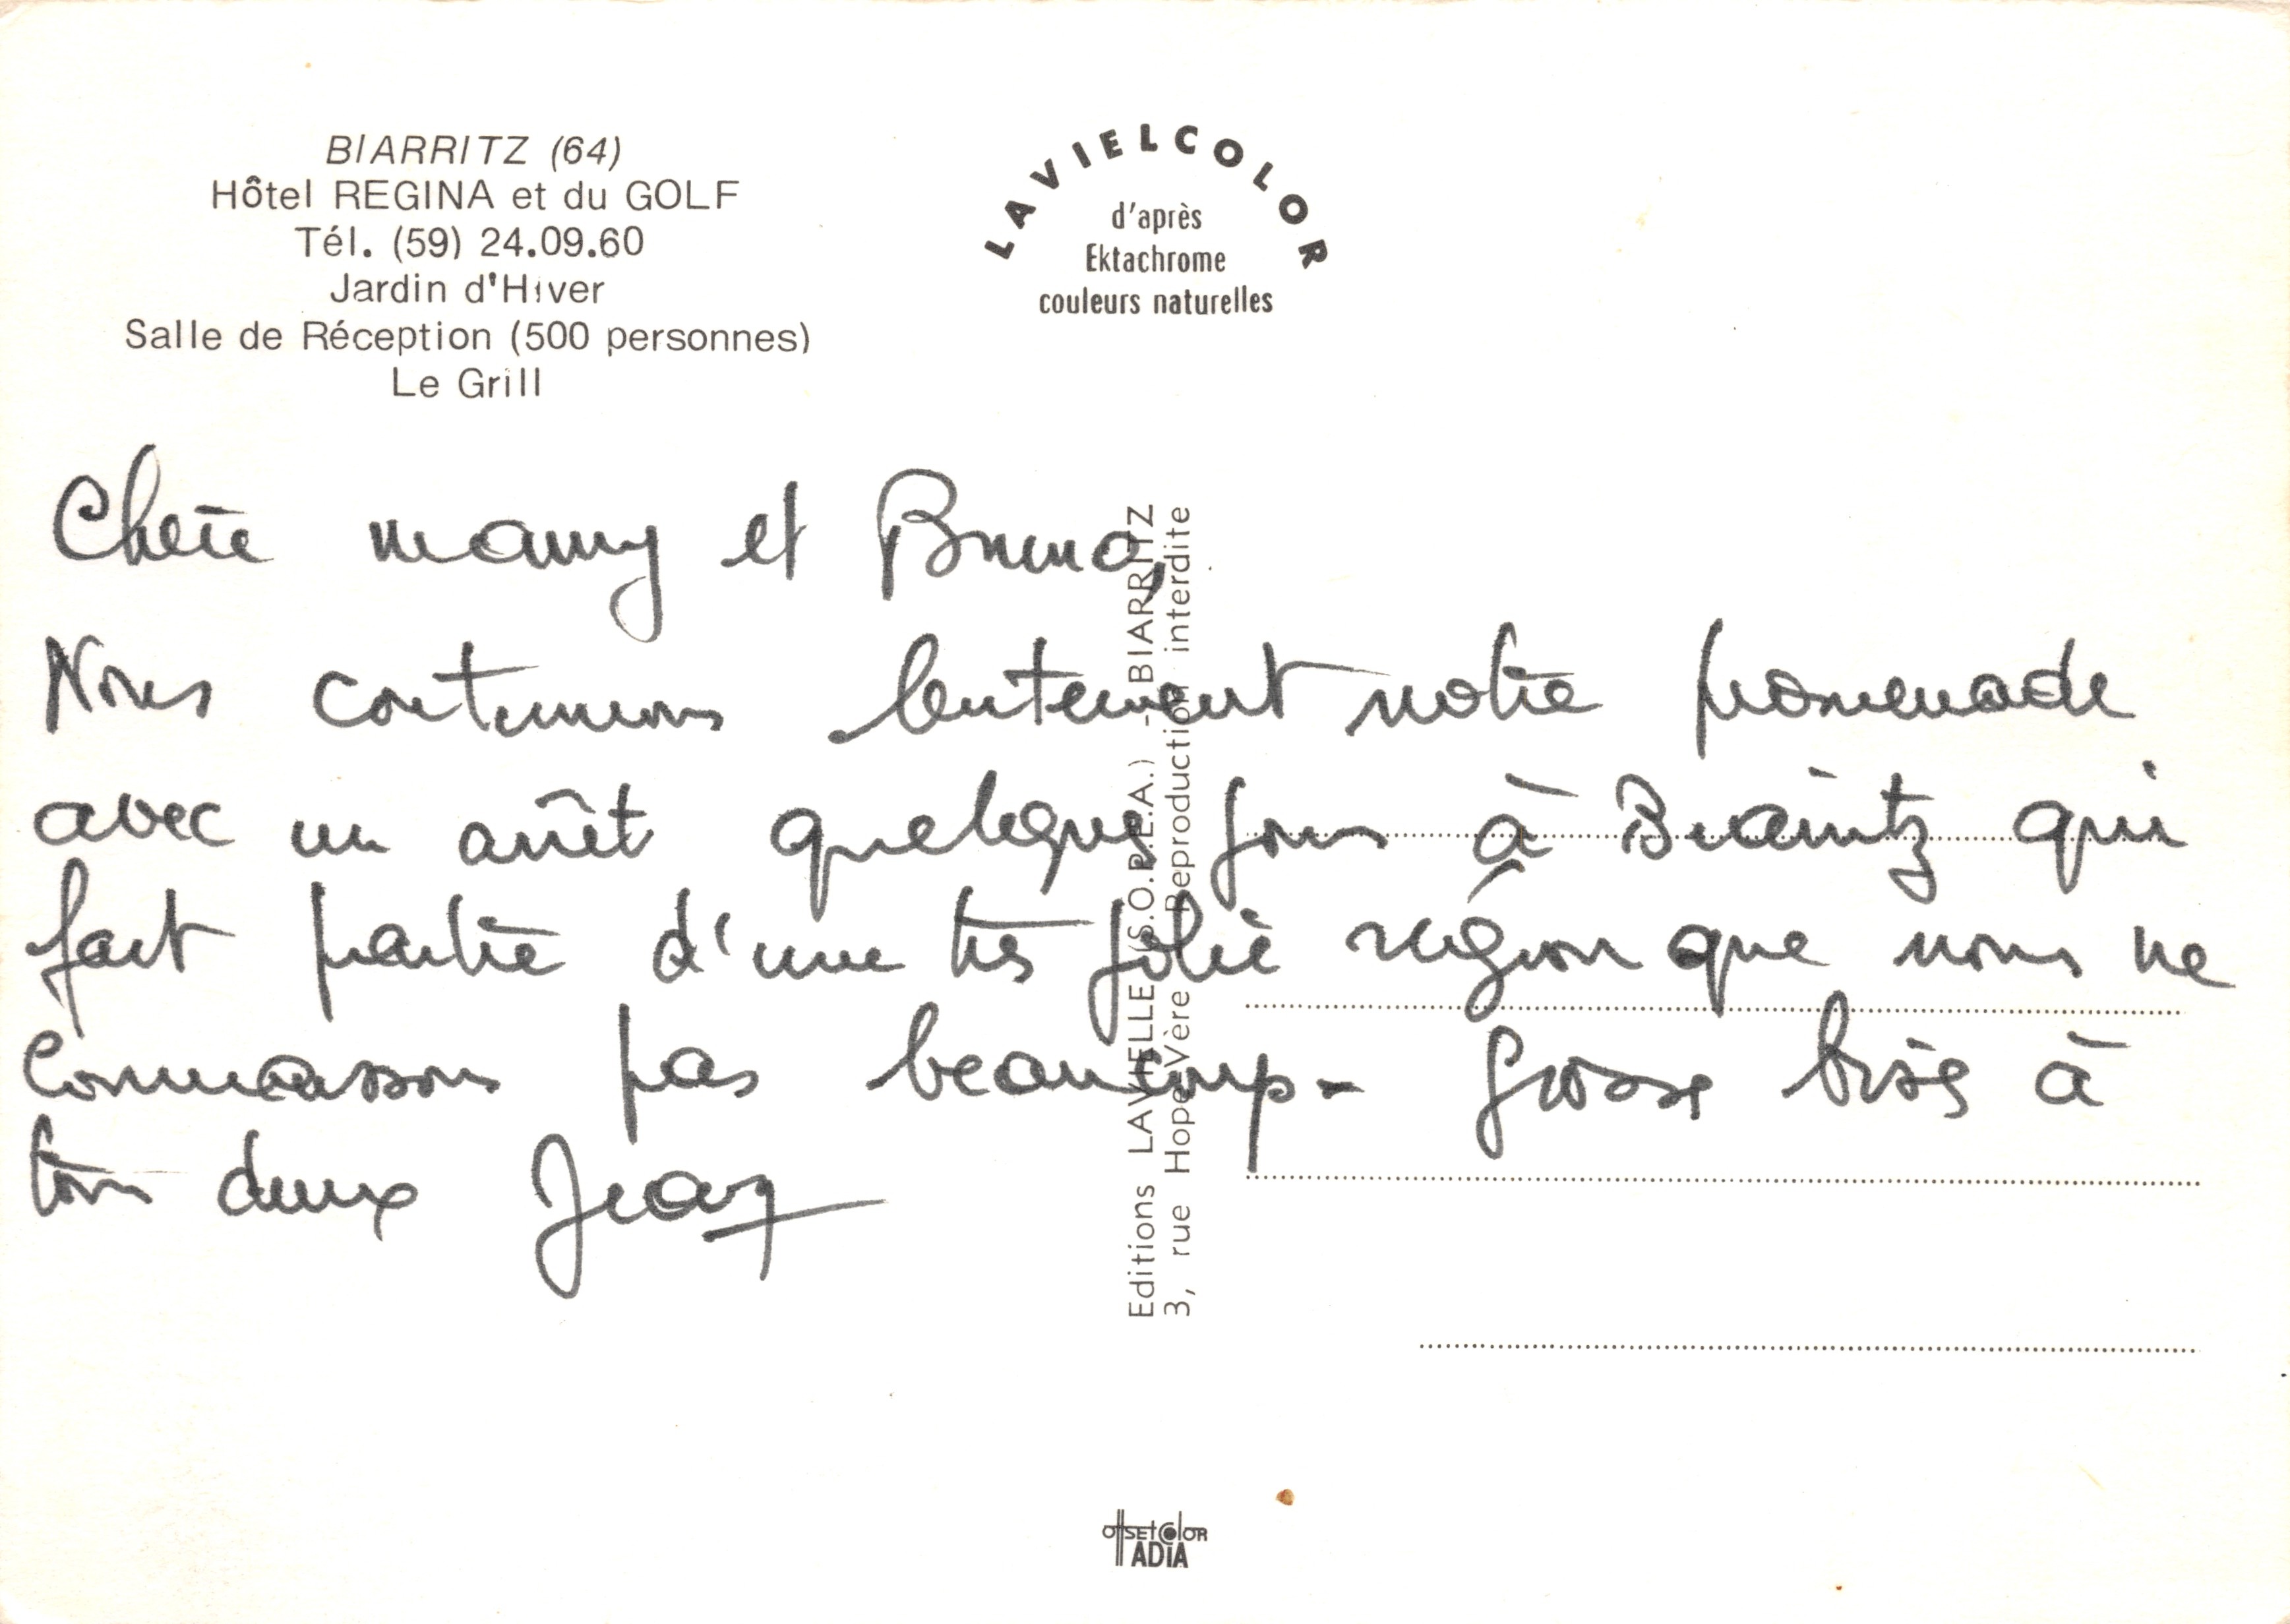 BIARRITZ (64)
Hôtel REGINA et du GOLF
Tél. (59) 24.09.60
Jardin d'Hiver
Salle de Réception (500 personnes)
Le Grill
LAVIELCOLOR
d'après
Ektachrome
couleurs naturelles
Chère mamy et Bruno,
Nous continuons lentement notre promenade
avec un arrêt quelques jours à Biarritz qui
fait partie d'une très jolie région que nous ne
connaissons pas beaucoup - Grosse bises à
tous deux Jean
Editions LAVIELLE (S.O.P.E.A.) - BIARRITZ
3, rue Hope Vère Reproduction interdite
offsetcolor
ADIA